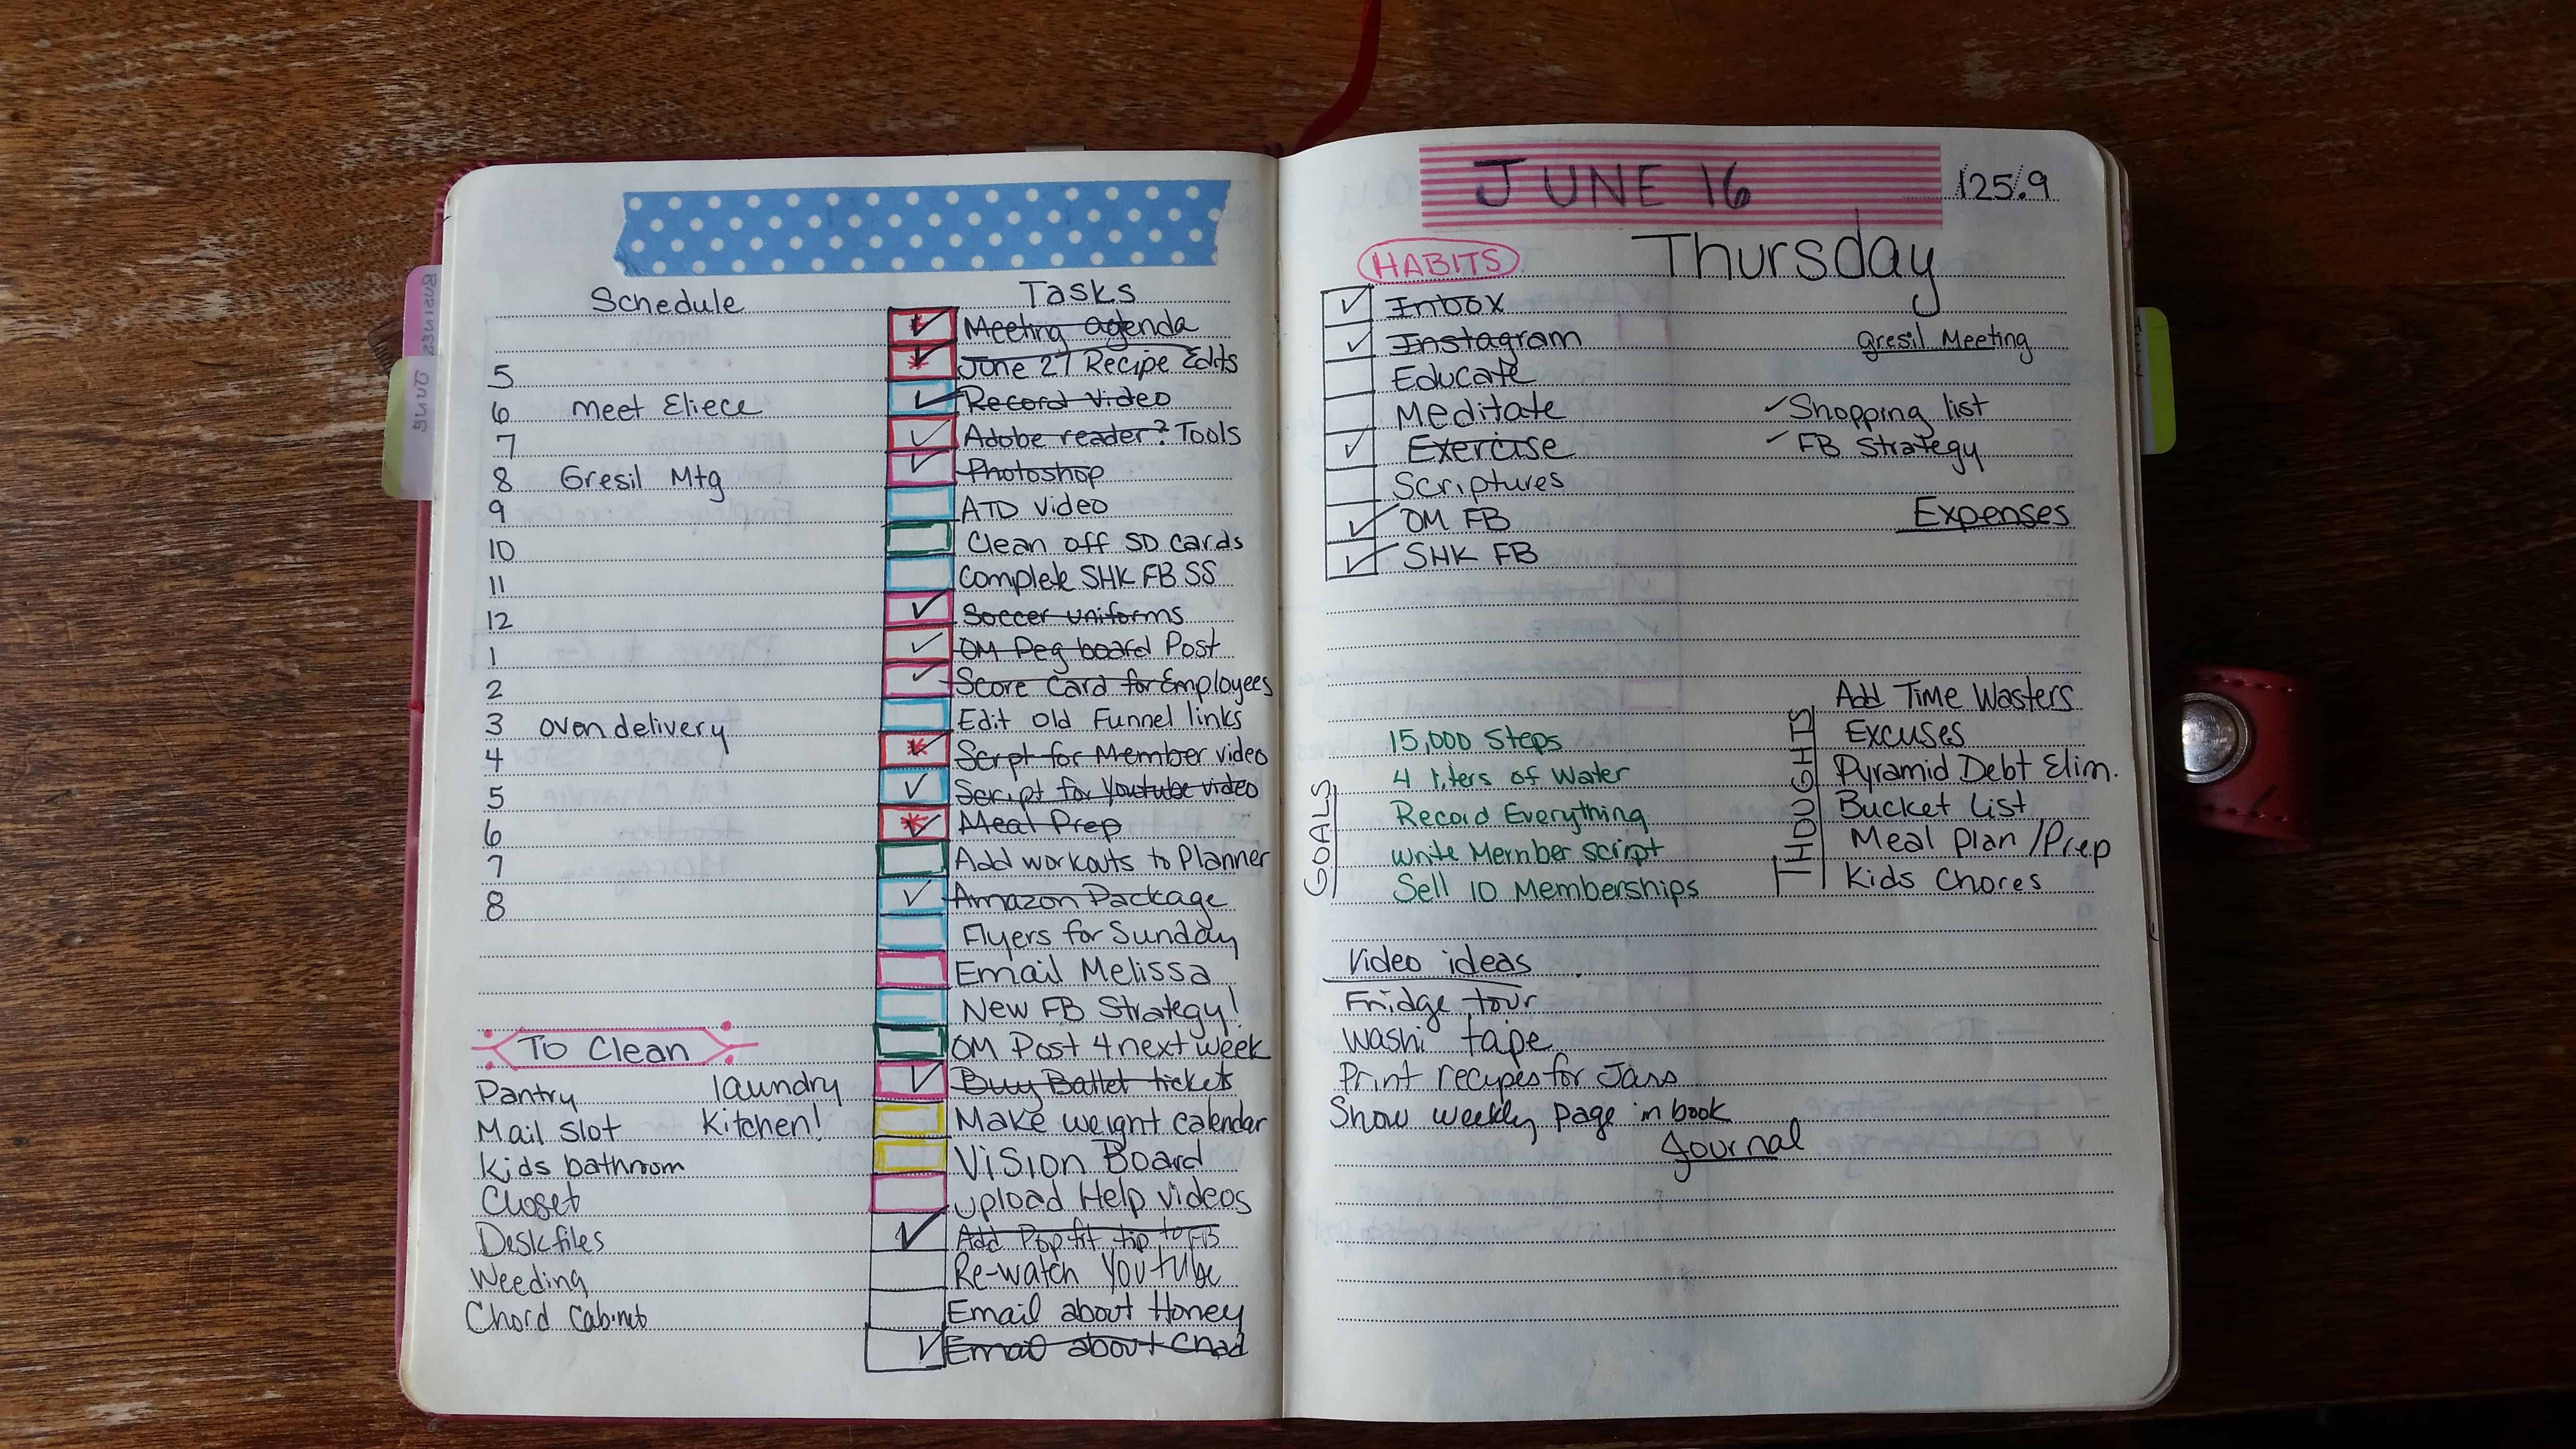 Business
Schedule
5
6 meet Eliece
7
8 Gresil Mtg
9
10
11
12
1
2
3 oven delivery
4
5
6
7
8
To Clean
Pantry laundry
Mail slot Kitchen!
Kids bathroom
Closet
Desk files
Weeding
Chord Cabinet
Tasks
Meeting agenda
June 27 Recipe Edits
Record Video
Adobe reader? Tools
Photoshop
ATD video
Clean off SD cards
Complete SHK FB SS
Soccer uniforms
OM Peg board Post
Score Card for Employees
Edit old Funnel links
Script for Member video
Script for Youtube video
Meal Prep
Add workouts to Planner
Amazon Package
Flyers for Sunday
Email Melissa
New FB Strategy!
OM Post 4 next week
Buy Ballet tickets
Make weight calendar
Vision Board
Upload Help videos
Add Pop fit tip to FB
Re-watch Youtube
Email about Honey
Email about Chad
JUNE 16 125.9
Thursday
HABITS
Inbox
Instagram
Educate
Meditate
Exercise
Scriptures
OM FB
SHK FB
Gresil Meeting
Shopping list
FB Strategy
Expenses
GOALS
15,000 Steps
4 liters of Water
Record Everything
Write Member script
Sell 10 Memberships
THOUGHTS
Add Time Wasters
Excuses
Pyramid Debt Elim.
Bucket List
Meal Plan/Prep
Kids Chores
Video ideas
Fridge tour
Washi tape
Print recipes for Jars
Show weekly page in book
Journal